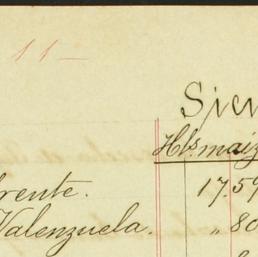 11—
Sien
Hls. maiz
frente. 17.59
Valenzuela. „ 80